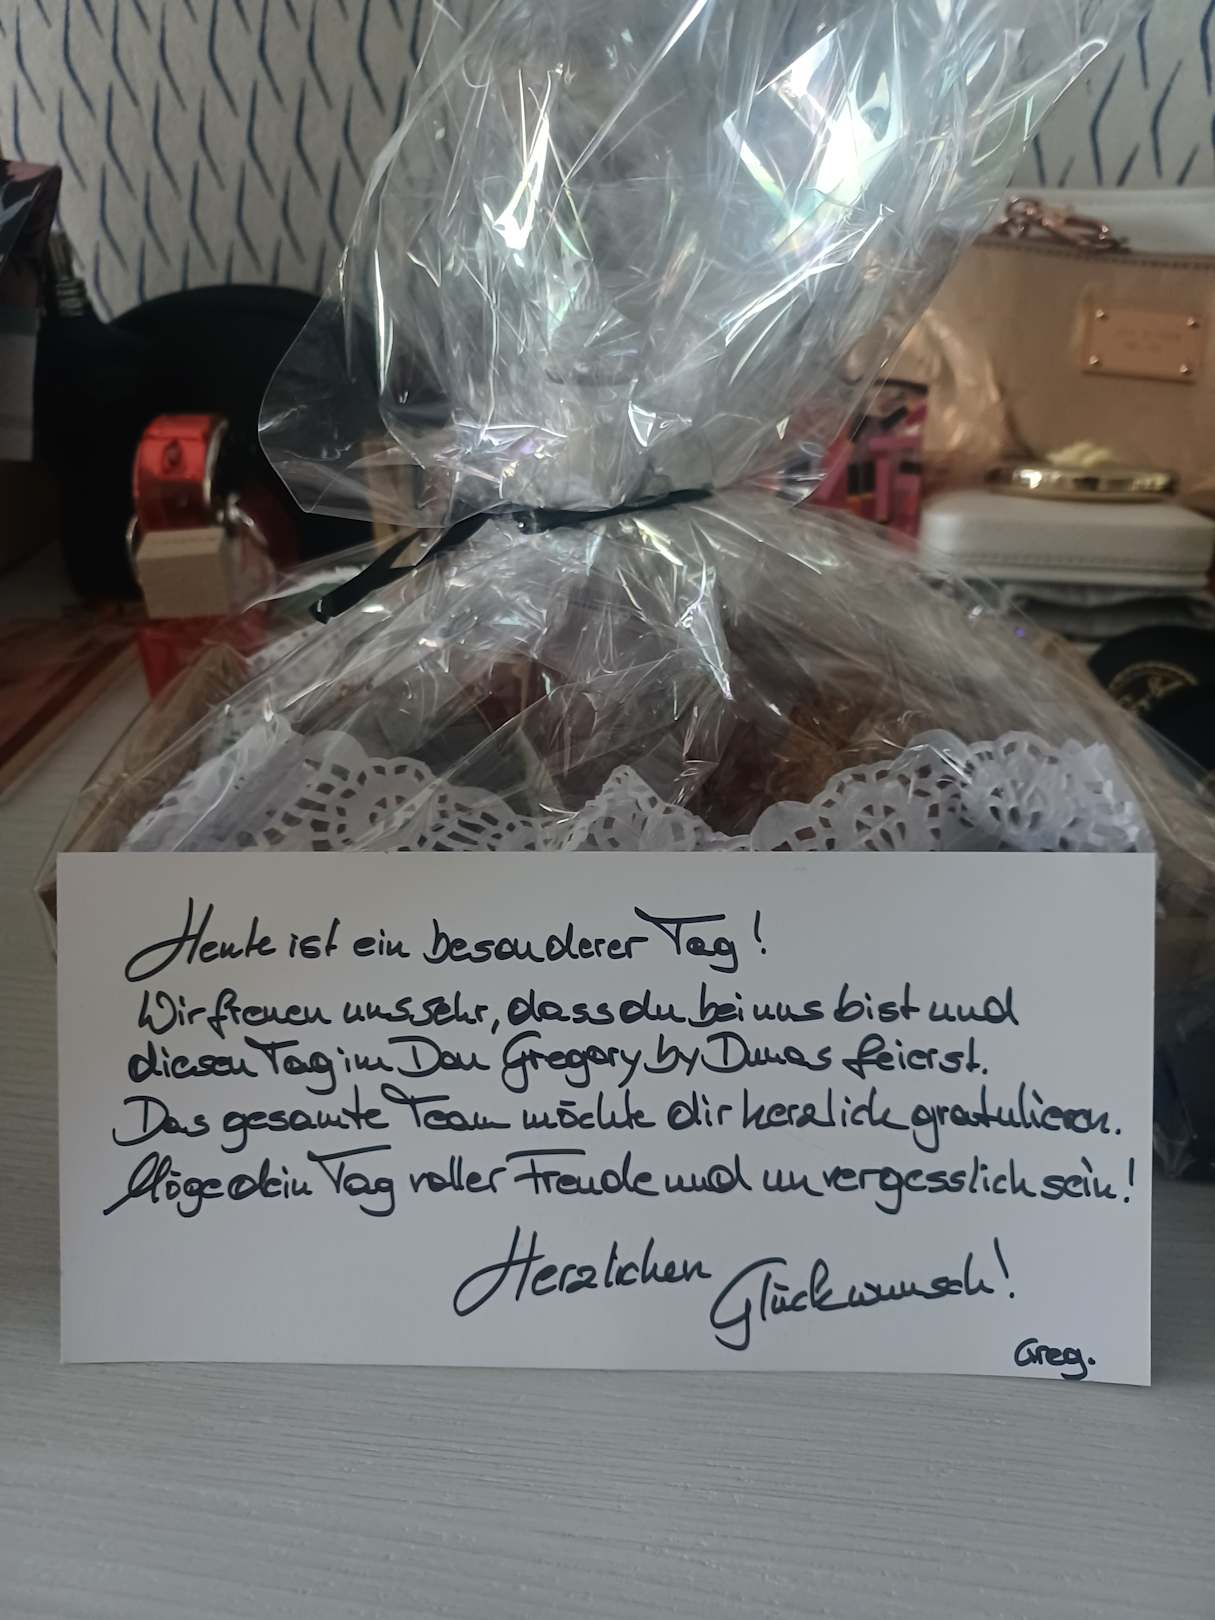 Heute ist ein besonderer Tag!
Wir freuen uns sehr, dass du bei uns bist und
diesen Tag im Don Gregory by Dunas feierst.
Das gesamte Team möchte dir herzlich gratulieren.
Möge dein Tag voller Freude und unvergesslich sein!
Herzlichen Glückwunsch!
Greg.